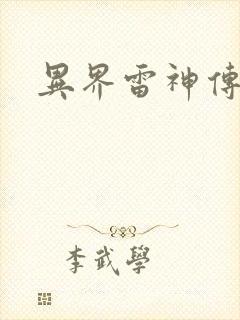 異界雷神傳
李武學